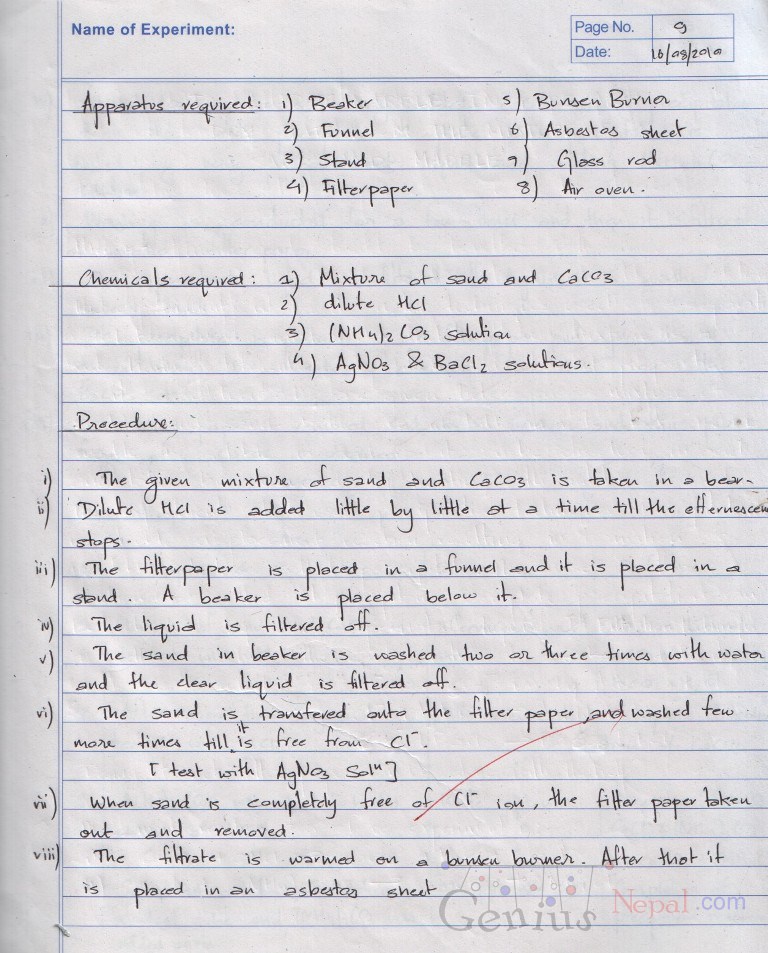 Name of Experiment:
Page No. 9
Date: 16/09/2010
Apparatus required: 1) Beaker 5) Bunsen Burner
2) Funnel 6) Asbestos sheet
3) Stand 7) Glass rod
4) Filterpaper 8) Air oven.
Chemicals required: 1) Mixture of sand and CaCO3
2) dilute HCl
3) (NH4)2 CO3 solution
4) AgNO3 & BaCl2 solutions.
Procedure:
i) The given mixture of sand and CaCO3 is taken in a bear-
ii) Dilute HCl is added little by little at a time till the effervescen
stops.
iii) The filterpaper is placed in a funnel and it is placed in a
stand. A beaker is placed below it.
iv) The liquid is filtered off.
v) The sand in beaker is washed two or three times with water
and the clear liquid is filtered off.
vi) The sand is transfered onto the filter paper and washed few
more times till it is free from Cl-.
[ test with AgNO3 Solⁿ]
vii) When sand is completely free of Cl- ion, the filter paper taken
out and removed.
viii) The filtrate is warmed on a bunsen burner. After that it
is placed in an asbestos sheet
Genius Nepal.com